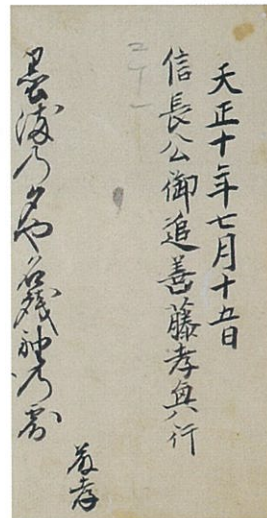 天正十年七月十五日
信長公御追善藤孝興行
墨染乃夕や名残袖乃露
藤孝